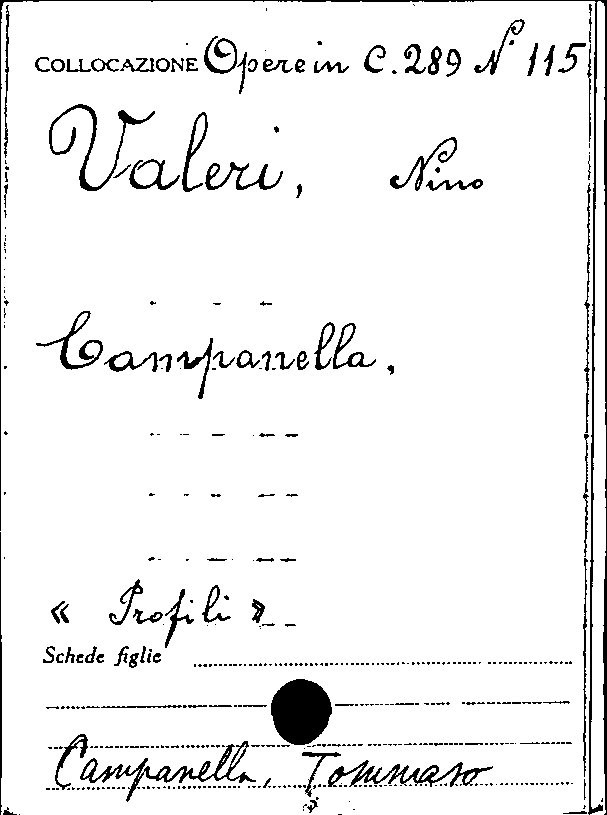 COLLOCAZIONE Opere in C. 289 N° 115
Valeri, Nino
Campanella,
« Profili »
Schede figlie
Campanella, Tommaso